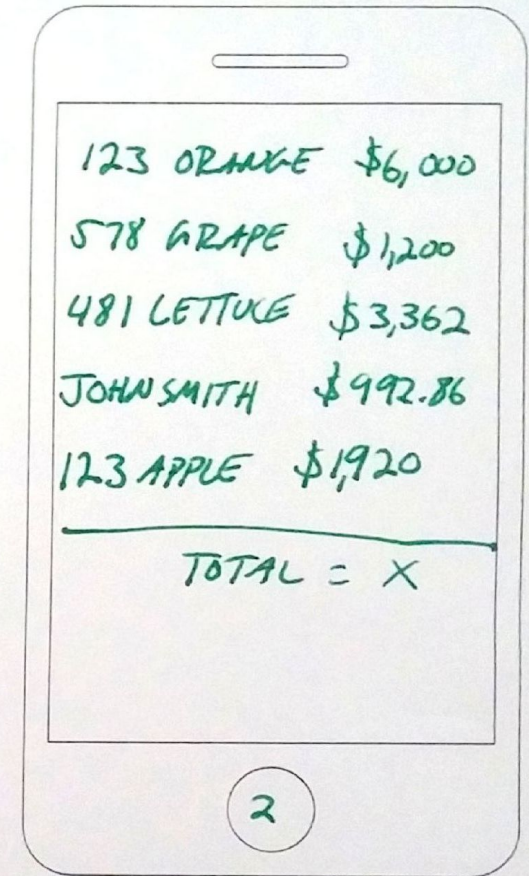 123 ORANGE $6,000
578 GRAPE $1,200
481 LETTUCE $3,362
JOHN SMITH $992.86
123 APPLE $1,920
TOTAL = X
2